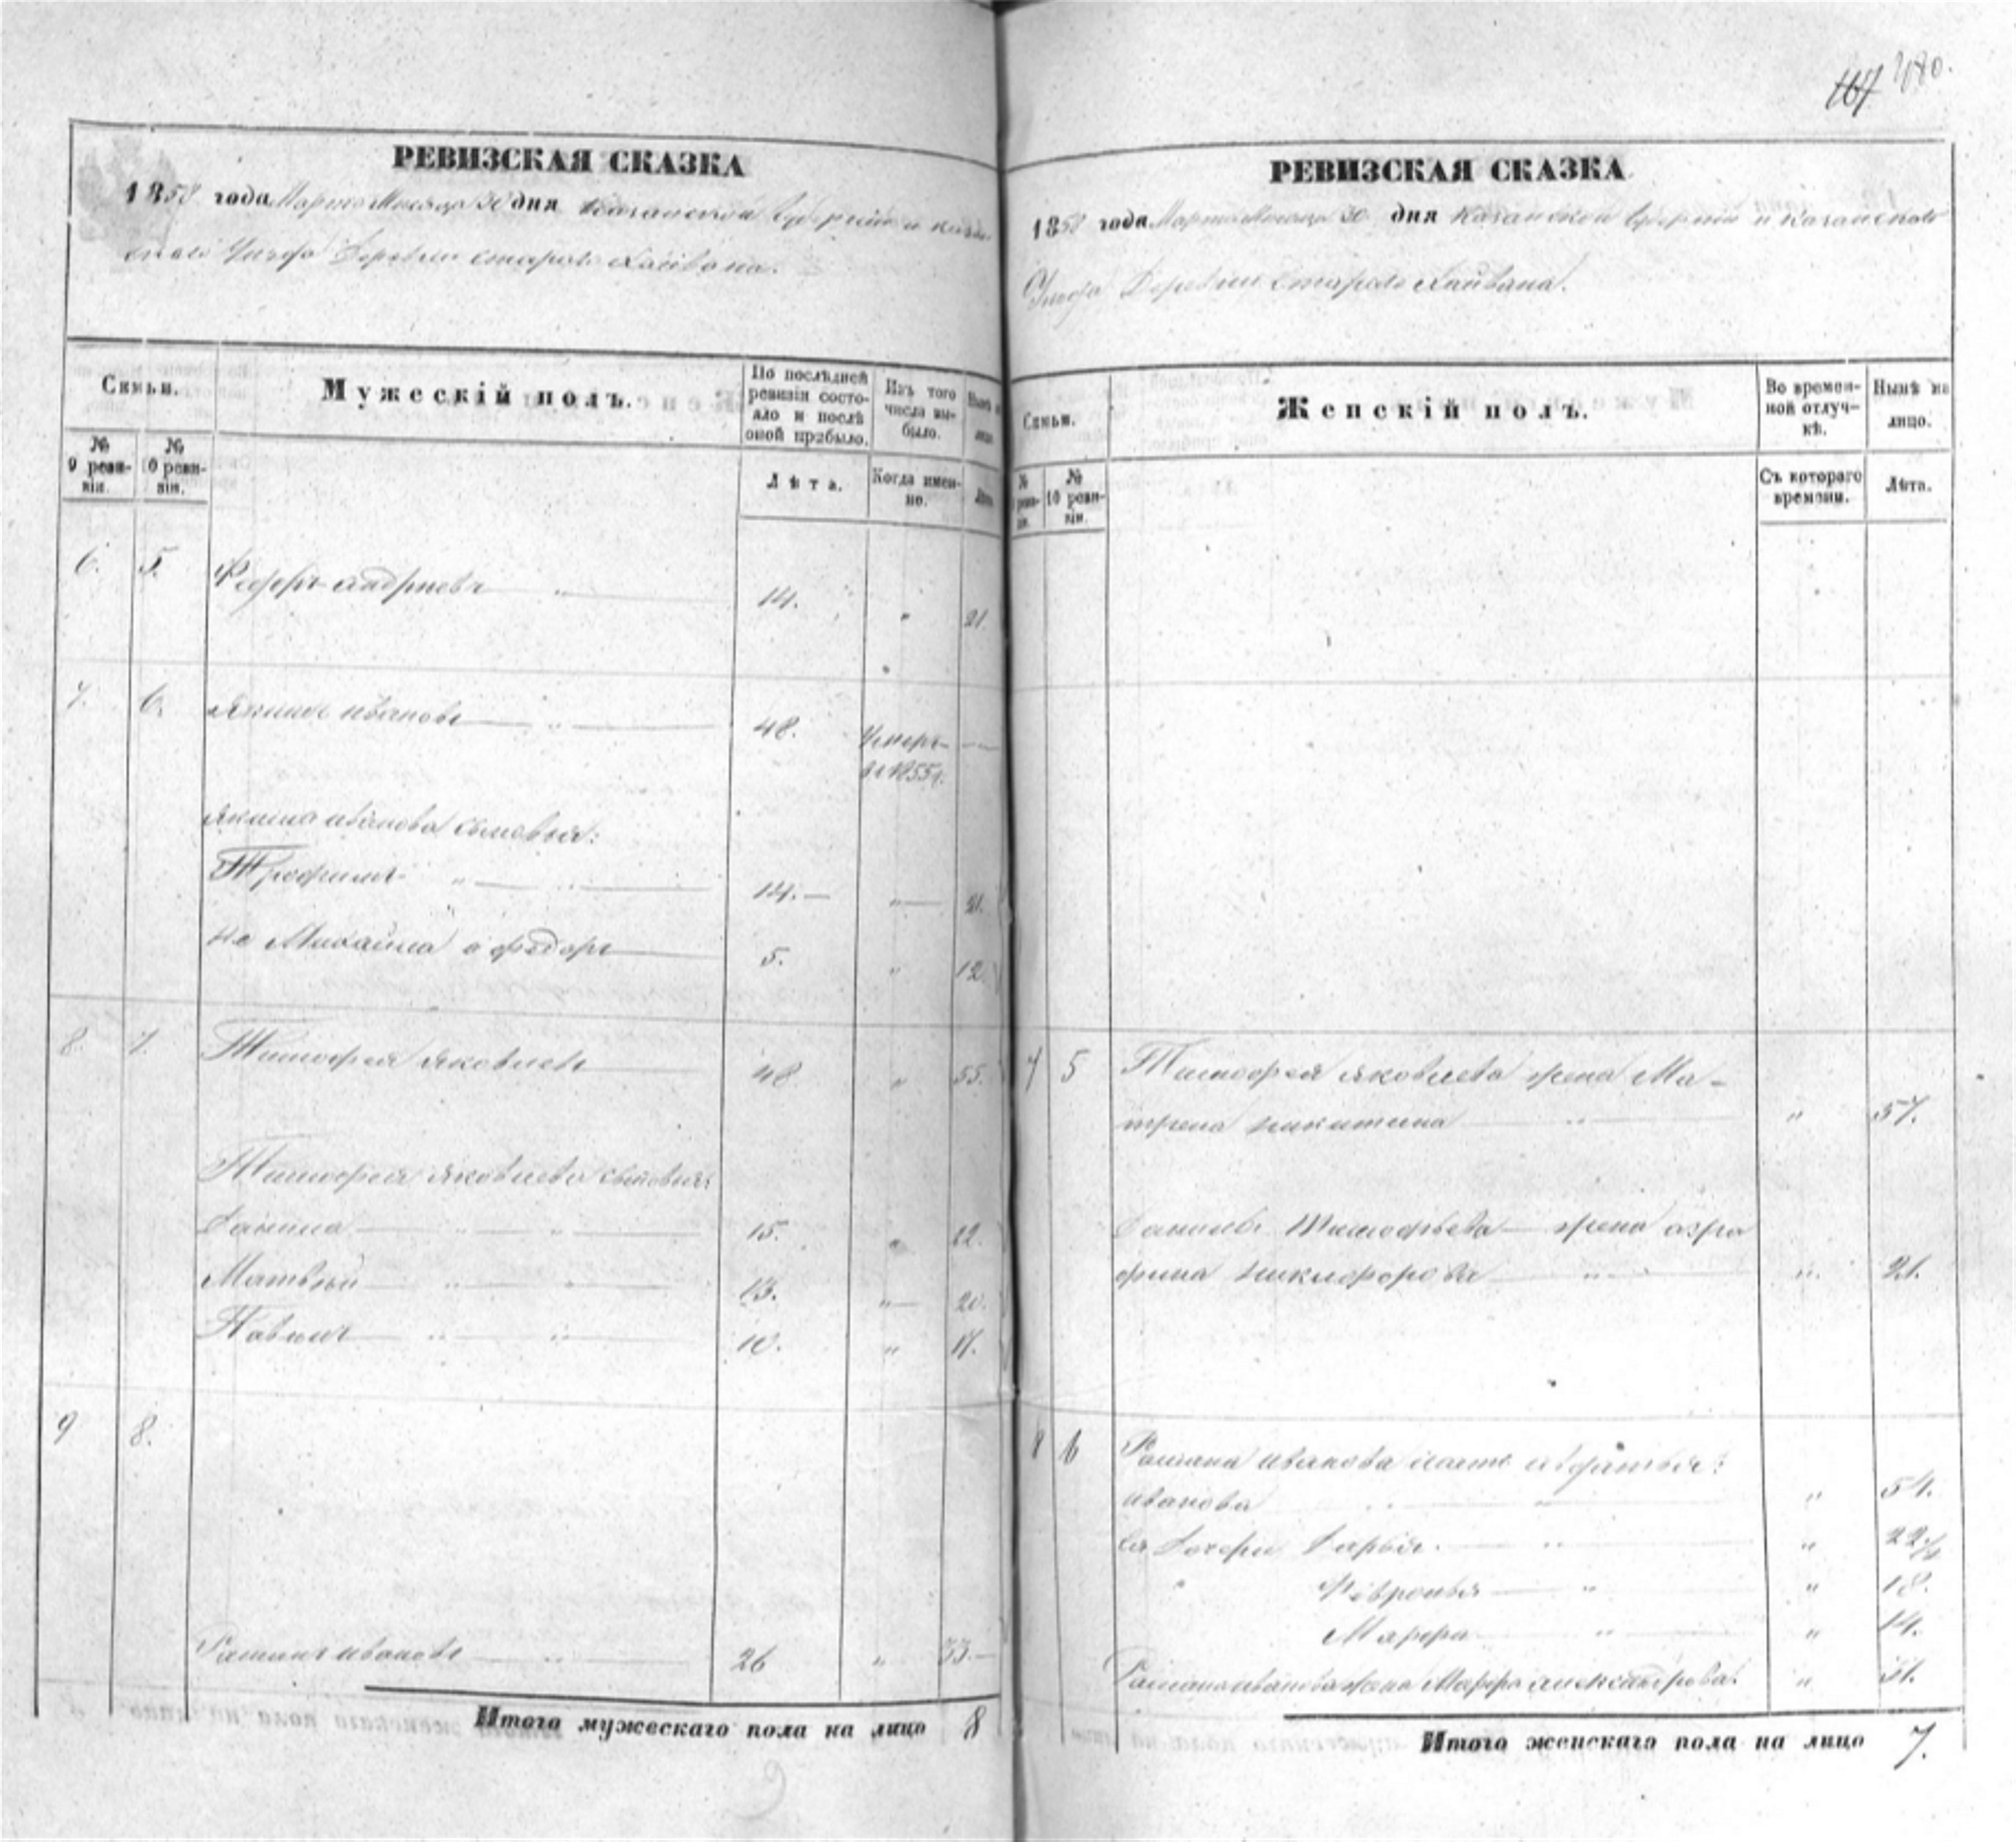 180.
РЕВИЗСКАЯ СКАЗКА
1858 года Марта Месяца 30 дня Казанской Губернии и казан
скаго Уезда Деревни Стараго
Семьи.
Мужескій полъ.
По послѣдней ревизіи состояло и послѣ оной прибыло.
Изъ того числа выбыло.
Нынѣ
№ 9 ревизіи.
№ 10 ревизіи.
Лѣта.
Когда именно.
Лѣта
6. 5. Федоръ Андреевъ " 14. " 21.
7. 6. Якимъ Ивановъ " 48. Умеръ —
въ 1855 г.
Якима Иванова сыновья:
Трофимъ " " 14. — " — 21.
Михайла Федоръ 5. " 12
8. 7. Тимофей Яковлевъ 48 " 55.
Тимофея Яковлева сыновья:
Данила " " 15. " 22.
Матвей " " 13. " 20.
Павелъ " " 10. " 17.
9 8.
Романъ Ивановъ " 26 " 33. —
Итого мужескаго пола на лицо 8
9
РЕВИЗСКАЯ СКАЗКА
1858 года Марта Месяца 30 дня Казанской Губернии и Казанскаго
Уезда Деревни Стараго
Семьи.
Женскій полъ.
Во временной отлучкѣ.
Нынѣ на лицо.
№ ревизіи.
№ 10 ревизіи.
Съ котораго времени.
Лѣта.
7 5 Тимофея Яковлева жена Ма-
трена Никитина " " 57.
Данилы Тимофеева жена Агра
фина Никифорова " " 21.
8 6 Романа Иванова мать
Иванова " " " 54.
ея Дочери Дарья. " " 22
" Февронья " " 18.
Марфа " " 14.
Романа Иванова жена Марфа Александрова. " 31.
Итого женскаго пола на лицо 7.